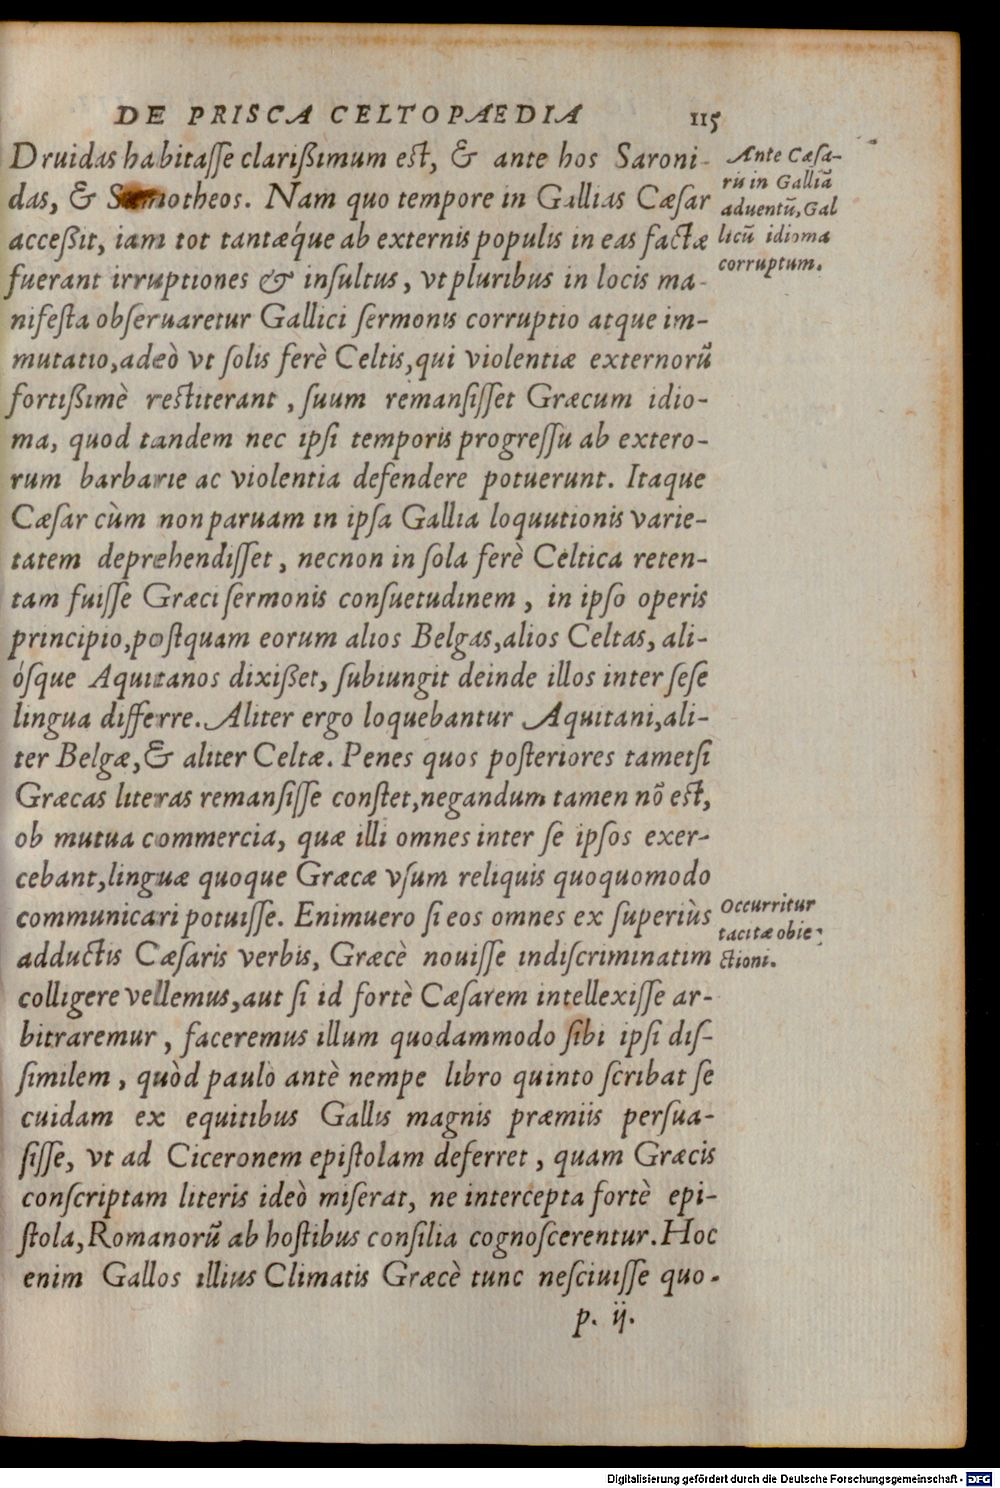 DE PRISCA CELTOPAEDIA 115
Druidas habitaſſe clarißimum est, & ante hos Saroni-
das, & Samotheos. Nam quo tempore in Gallias Cæſar
acceßit, iam tot tantæq́ue ab externis populis in eas factæ
fuerant irruptiones & inſultus, vt pluribus in locis ma-
nifeſta obſeruaretur Gallici ſermonis corruptio atque im-
mutatio, adeò vt ſolis ferè Celtis, qui violentiæ externorũ
fortißimè reſtiterant, ſuum remanſiſſet Græcum idio-
ma, quod tandem nec ipſi temporis progreſſu ab extero-
rum barbarie ac violentia defendere potuerunt. Itaque
Cæſar cùm non paruam in ipſa Gallia loquutionis varie-
tatem deprehendiſſet, necnon in ſola ferè Celtica reten-
tam fuiſſe Græci ſermonis conſuetudinem, in ipſo operis
principio, poſtquam eorum alios Belgas, alios Celtas, ali-
óſque Aquitanos dixißet, ſubiungit deinde illos inter ſeſe
lingua differre. Aliter ergo loquebantur Aquitani, ali-
ter Belgæ, & aliter Celtæ. Penes quos poſteriores tametſi
Græcas literas remanſiſſe conſtet, negandum tamen nõ est,
ob mutua commercia, quæ illi omnes inter ſe ipſos exer-
cebant, linguæ quoque Græcæ vſum reliquis quoquomodo
communicari potuiſſe. Enimuero ſi eos omnes ex ſuperiùs
adductis Cæſaris verbis, Græcè nouiſſe indiſcriminatim
colligere vellemus, aut ſi id fortè Cæſarem intellexiſſe ar-
bitraremur, faceremus illum quodammodo ſibi ipſi diſ-
ſimilem, quòd paulò antè nempe libro quinto ſcribat ſe
cuidam ex equitibus Gallis magnis præmiis perſua-
ſiſſe, vt ad Ciceronem epiſtolam deferret, quam Græcis
conſcriptam literis ideò miſerat, ne intercepta fortè epi-
ſtola, Romanorũ ab hoſtibus conſilia cognoſcerentur. Hoc
enim Gallos illius Climatis Græcè tunc neſciuiſſe quo-
p. ij.
Ante Cæſa-
ris in Galliã
aduentũ, Gal
licũ idioma
corruptum.
Occurritur
tacitæ obie-
ctioni.
Digitalisierung gefördert durch die Deutsche Forschungsgemeinschaft - DFG